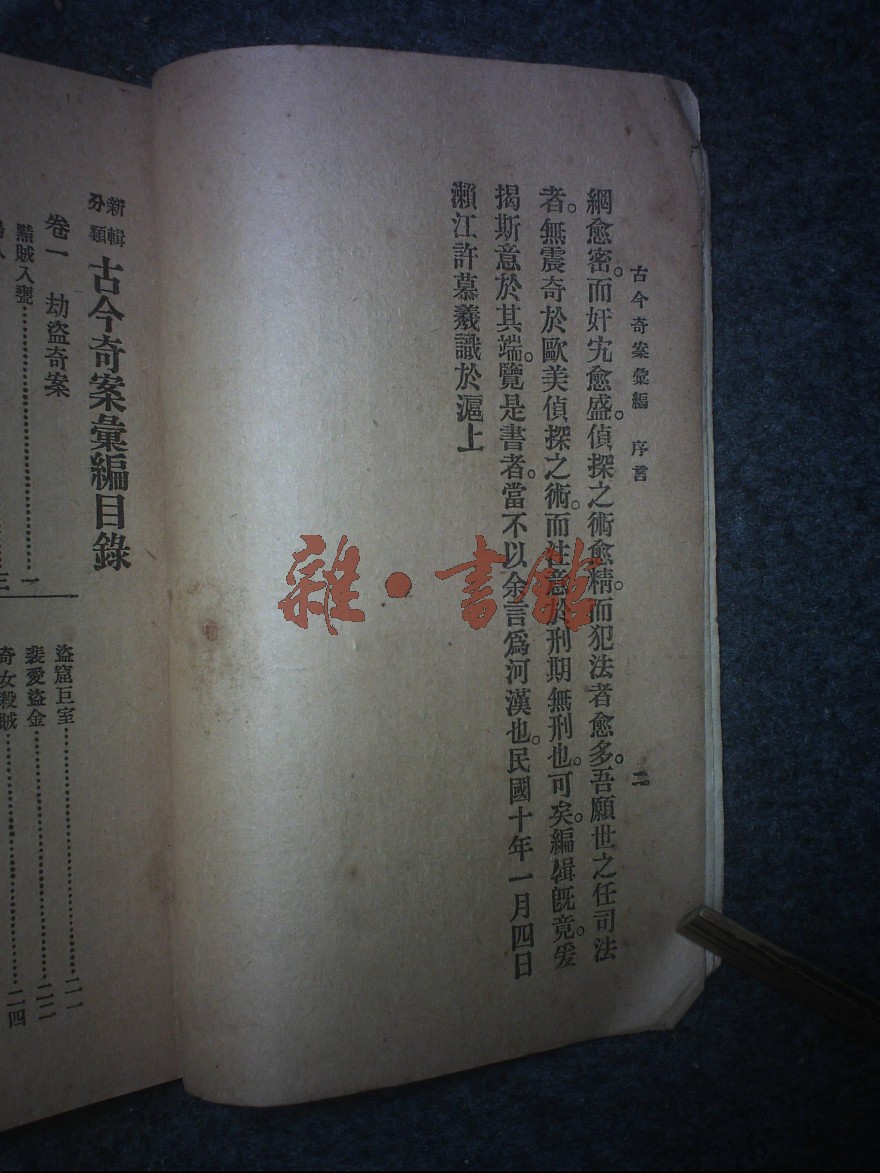 古今奇案彙編　序言　二
網愈密。而奸宄愈盛。偵探之術愈精。而犯法者愈多。吾願世之任司法
者。無震奇於歐美偵探之術。而注意於刑期無刑也。可矣。編輯旣竟。爰
揭斯意於其端。覽是書者。當不以余言爲河漢也。民國十年一月四日
瀨江許慕羲識於滬上
新輯分類 古今奇案彙編目錄
卷一　劫盜奇案
黠賊入甕……一
三
盜窟巨室……二一
裴愛盜金……二二
奇女殺賊……二四
雜·書館